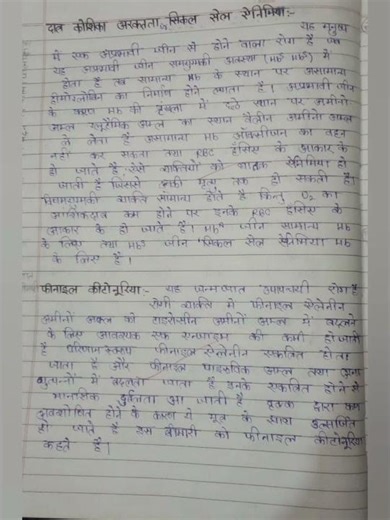 दात्र कोशिका अरक्तता, सिकल सेल एनिमिया:-
यह मनुष्य
में एक अप्रभावी जीन से होने वाला रोग है जब
यह अप्रभावी जीन समयुग्मकी अवस्था (Hbˢ Hbˢ) में
होता है तब सामान्य Hb के स्थान पर असामान्य
हीमोग्लोबिन का निर्माण होने लगता है। अप्रभावी जीन
के कारण Hb की श्रृंखला में छठे स्थान पर अमीनो
अम्ल ग्लूटैमिक अम्ल का स्थान वैलीन अमीनो अम्ल
ले लेता है असामान्य Hb ऑक्सीजन का वहन
नहीं कर सकता तथा RBC हँसिए के आकार के
हो जाते हैं ऐसे व्यक्तियों को घातक एनिमिया हो
जाती है जिससे उनकी मृत्यु तक हो सकती है।
विषमयुग्मकी व्यक्ति सामान्य होते हैं किन्तु O₂ का
आंशिकदाब कम होने पर इनके RBC हँसिए के
आकार के हो जाते हैं। Hbᴬ जीन सामान्य Hb
के लिए तथा Hbˢ जीन सिकल सेल एनिमिया Hb
के लिए है।
फीनाइल कीटोनूरिया:- यह जन्मजात उपापचयी रोग है
रोगी व्यक्ति में फीनाइल ऐलेनीन
अमीनो अम्ल को टाइरोसीन अमीनो अम्ल में बदलने
के लिए आवश्यक एक एन्जाइम की कमी हो जाती
है परिणामस्वरूप फीनाइल ऐलेनीन एकत्रित होता
जाता है और फीनाइल पाइरुविक अम्ल तथा अन्य
व्युत्पन्नों में बदलता जाता है इनके एकत्रित होने से
मानसिक दुर्बलता आ जाती है वृक्क द्वारा कम
अवशोषित होने के कारण ये मूत्र के साथ उत्सर्जित
हो जाते हैं इस बीमारी को फीनाइल कीटोनूरिया
कहते हैं।